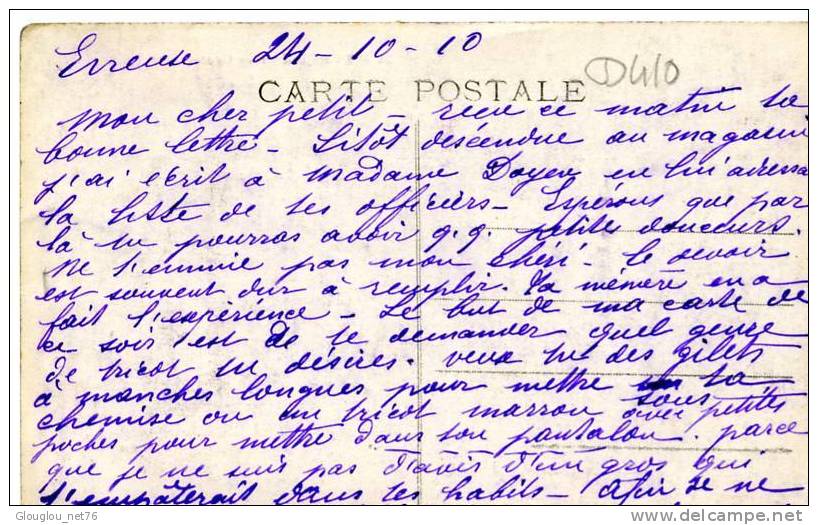 Erreuse 24-10-10
D410
CARTE POSTALE
Mon cher petit - reçu ce matin ta
bonne lettre - Sitôt descendue au magasin
j'ai écrit à Madame Doyen en lui adressa
la liste de tes officiers - Espérons que par
là tu pourras avoir q.q. petites douceurs.
Ne t'ennuie pas mon chéri - le devoir
est souvent dur à remplir. Ta mémère en a
fait l'expérience - Le but de ma carte de
ce soir est de te demander quel genre
de tricot tu désires. veux tu des gilets
à manches longues pour mettre sous ta
chemise ou un tricot marron avec petites
poches pour mettre dans ton pantalon. parce
que je ne suis pas d'avis d'un gros qui
t'empâterait dans tes habits - afin je ne
Glouglou_net76
delcampe.net